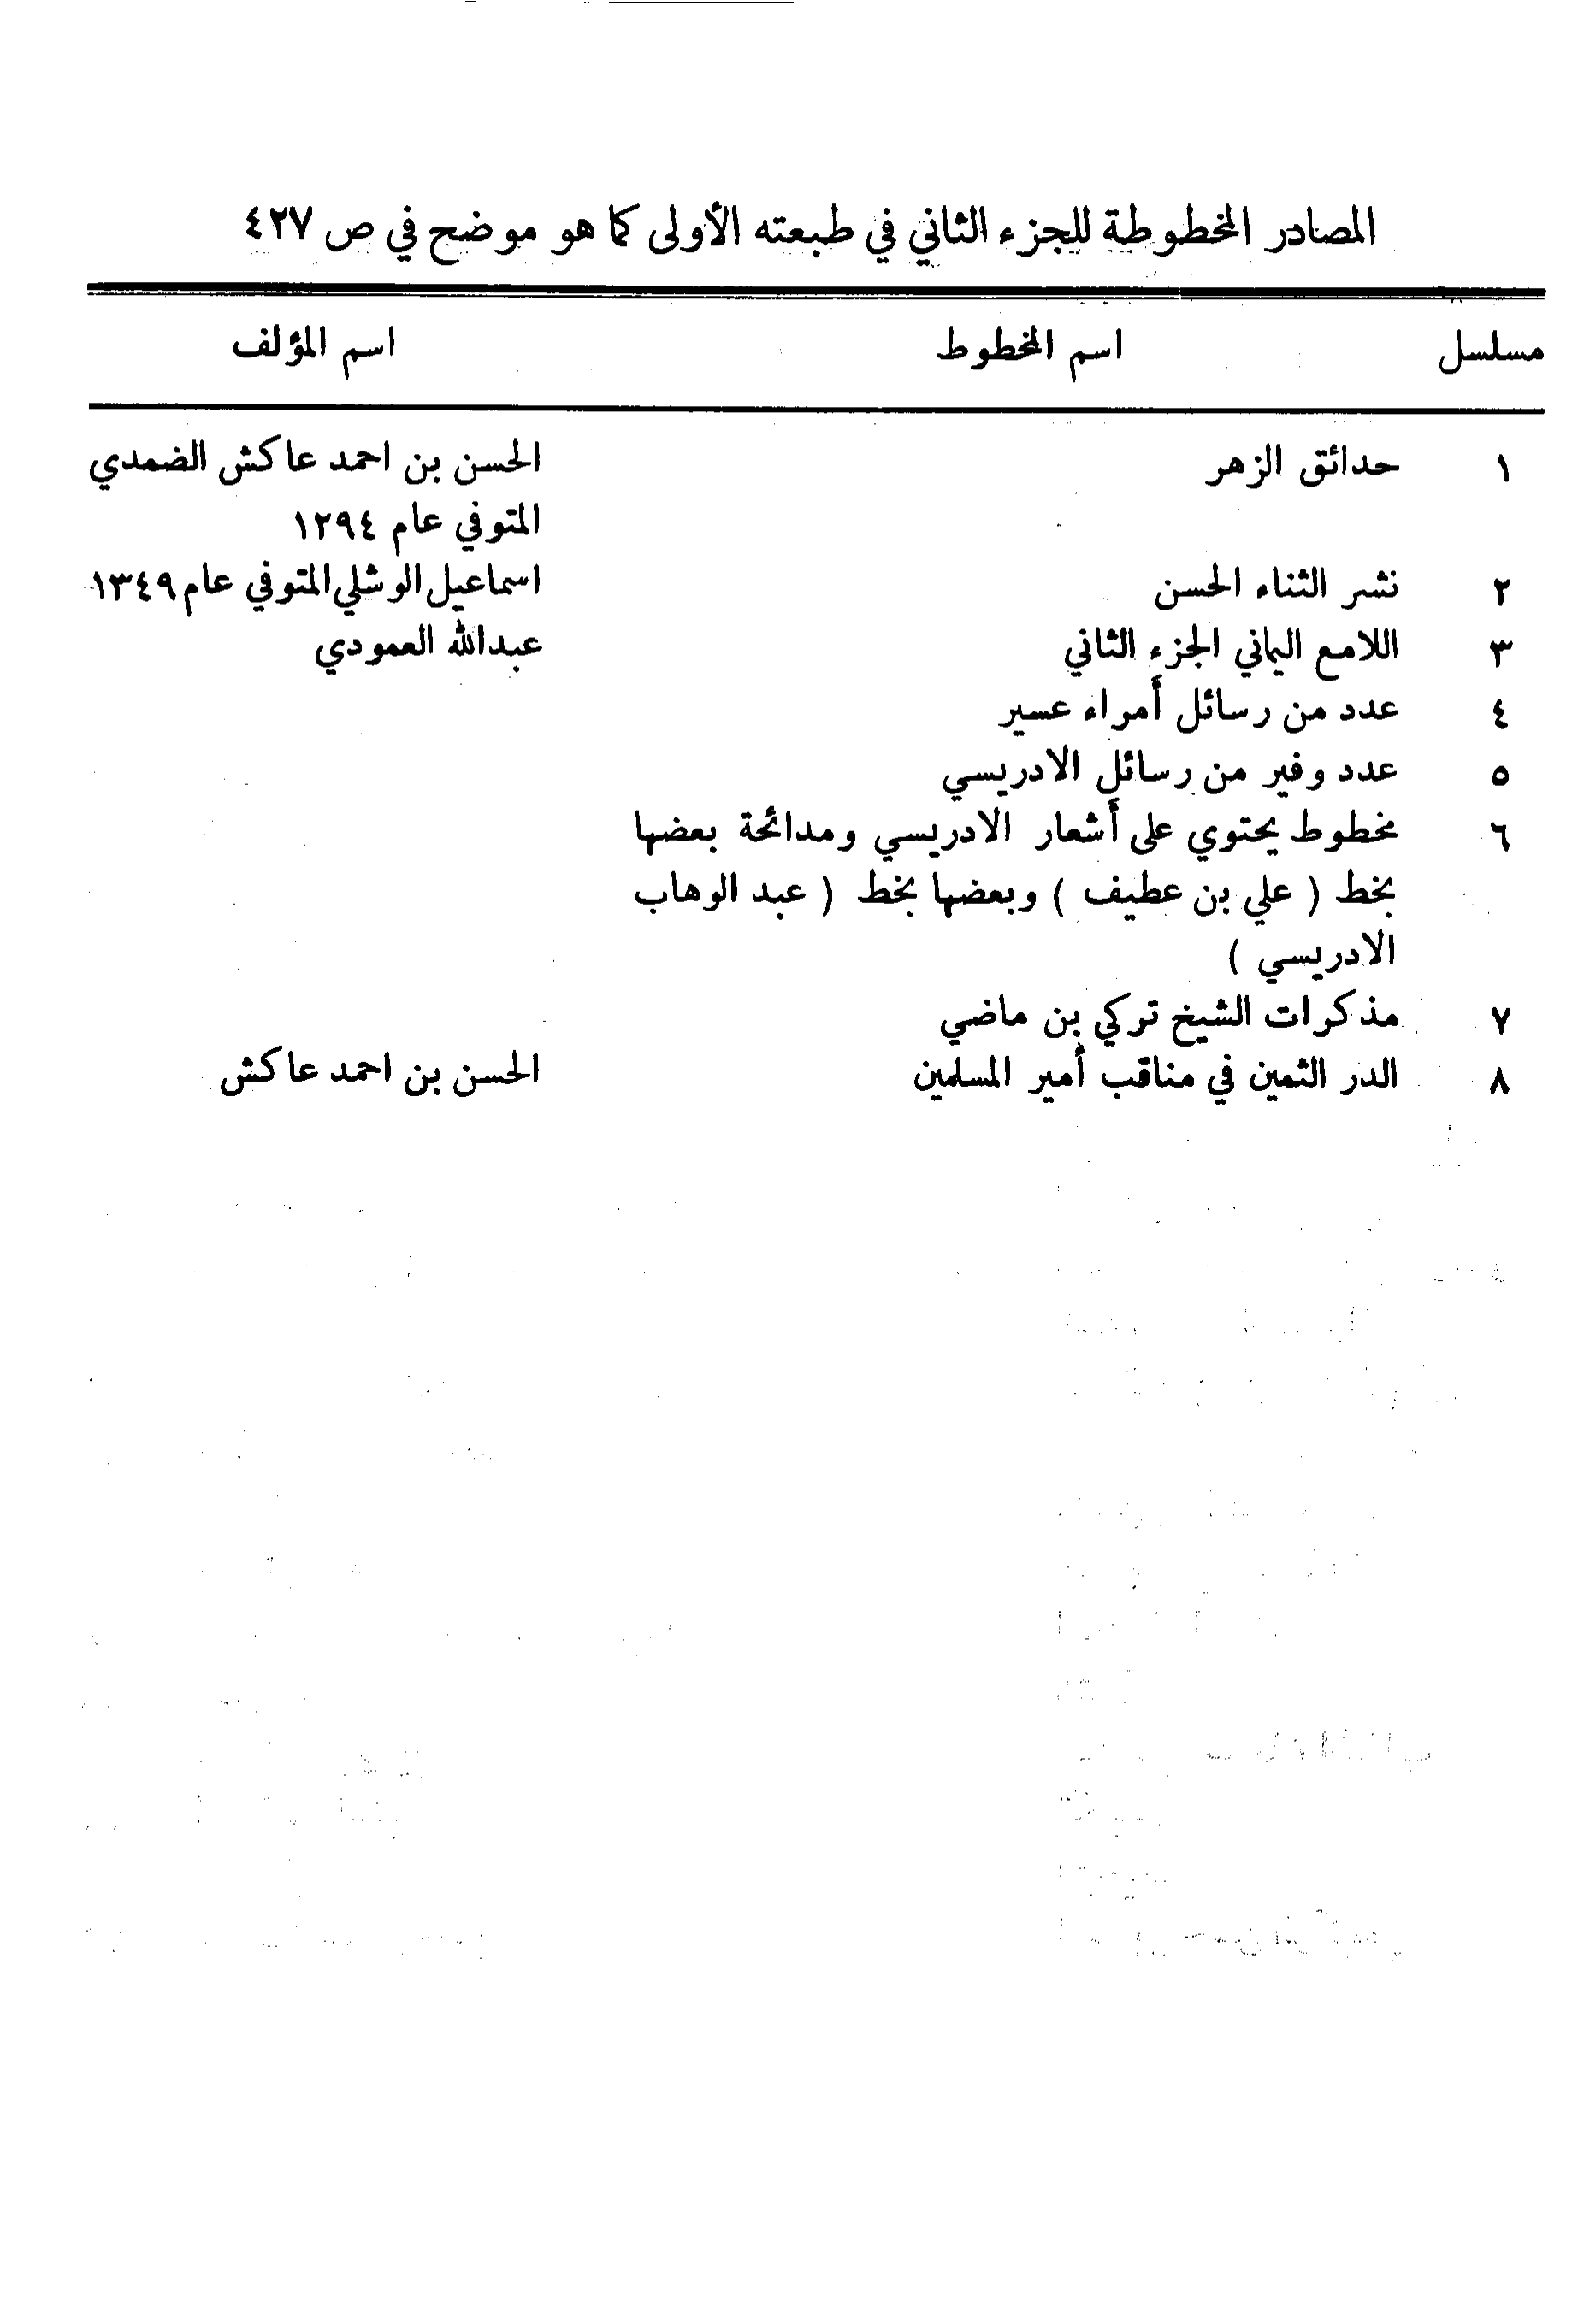 المصادر المخطوطة للجزء الثاني في طبعته الأولى كما هو موضح في ص ٤٢٧
مسلسل اسم المخطوط اسم المؤلف
١ حدائق الزهر الحسن بن احمد عاكش الضمدي
المتوفي عام ١٢٩٤
٢ نشر الثناء الحسن اسماعيل الوشلي المتوفي عام ١٣٤٩
٣ اللامع اليماني الجزء الثاني عبدالله العمودي
٤ عدد من رسائل أمراء عسير
٥ عدد وفير من رسائل الادريسي
٦ مخطوط يحتوي على أشعار الادريسي ومدائحة بعضها
بخط ( علي بن عطيف ) وبعضها بخط ( عبد الوهاب
الادريسي )
٧ مذكرات الشيخ تركي بن ماضي
٨ الدر الثمين في مناقب أمير المسلمين الحسن بن احمد عاكش